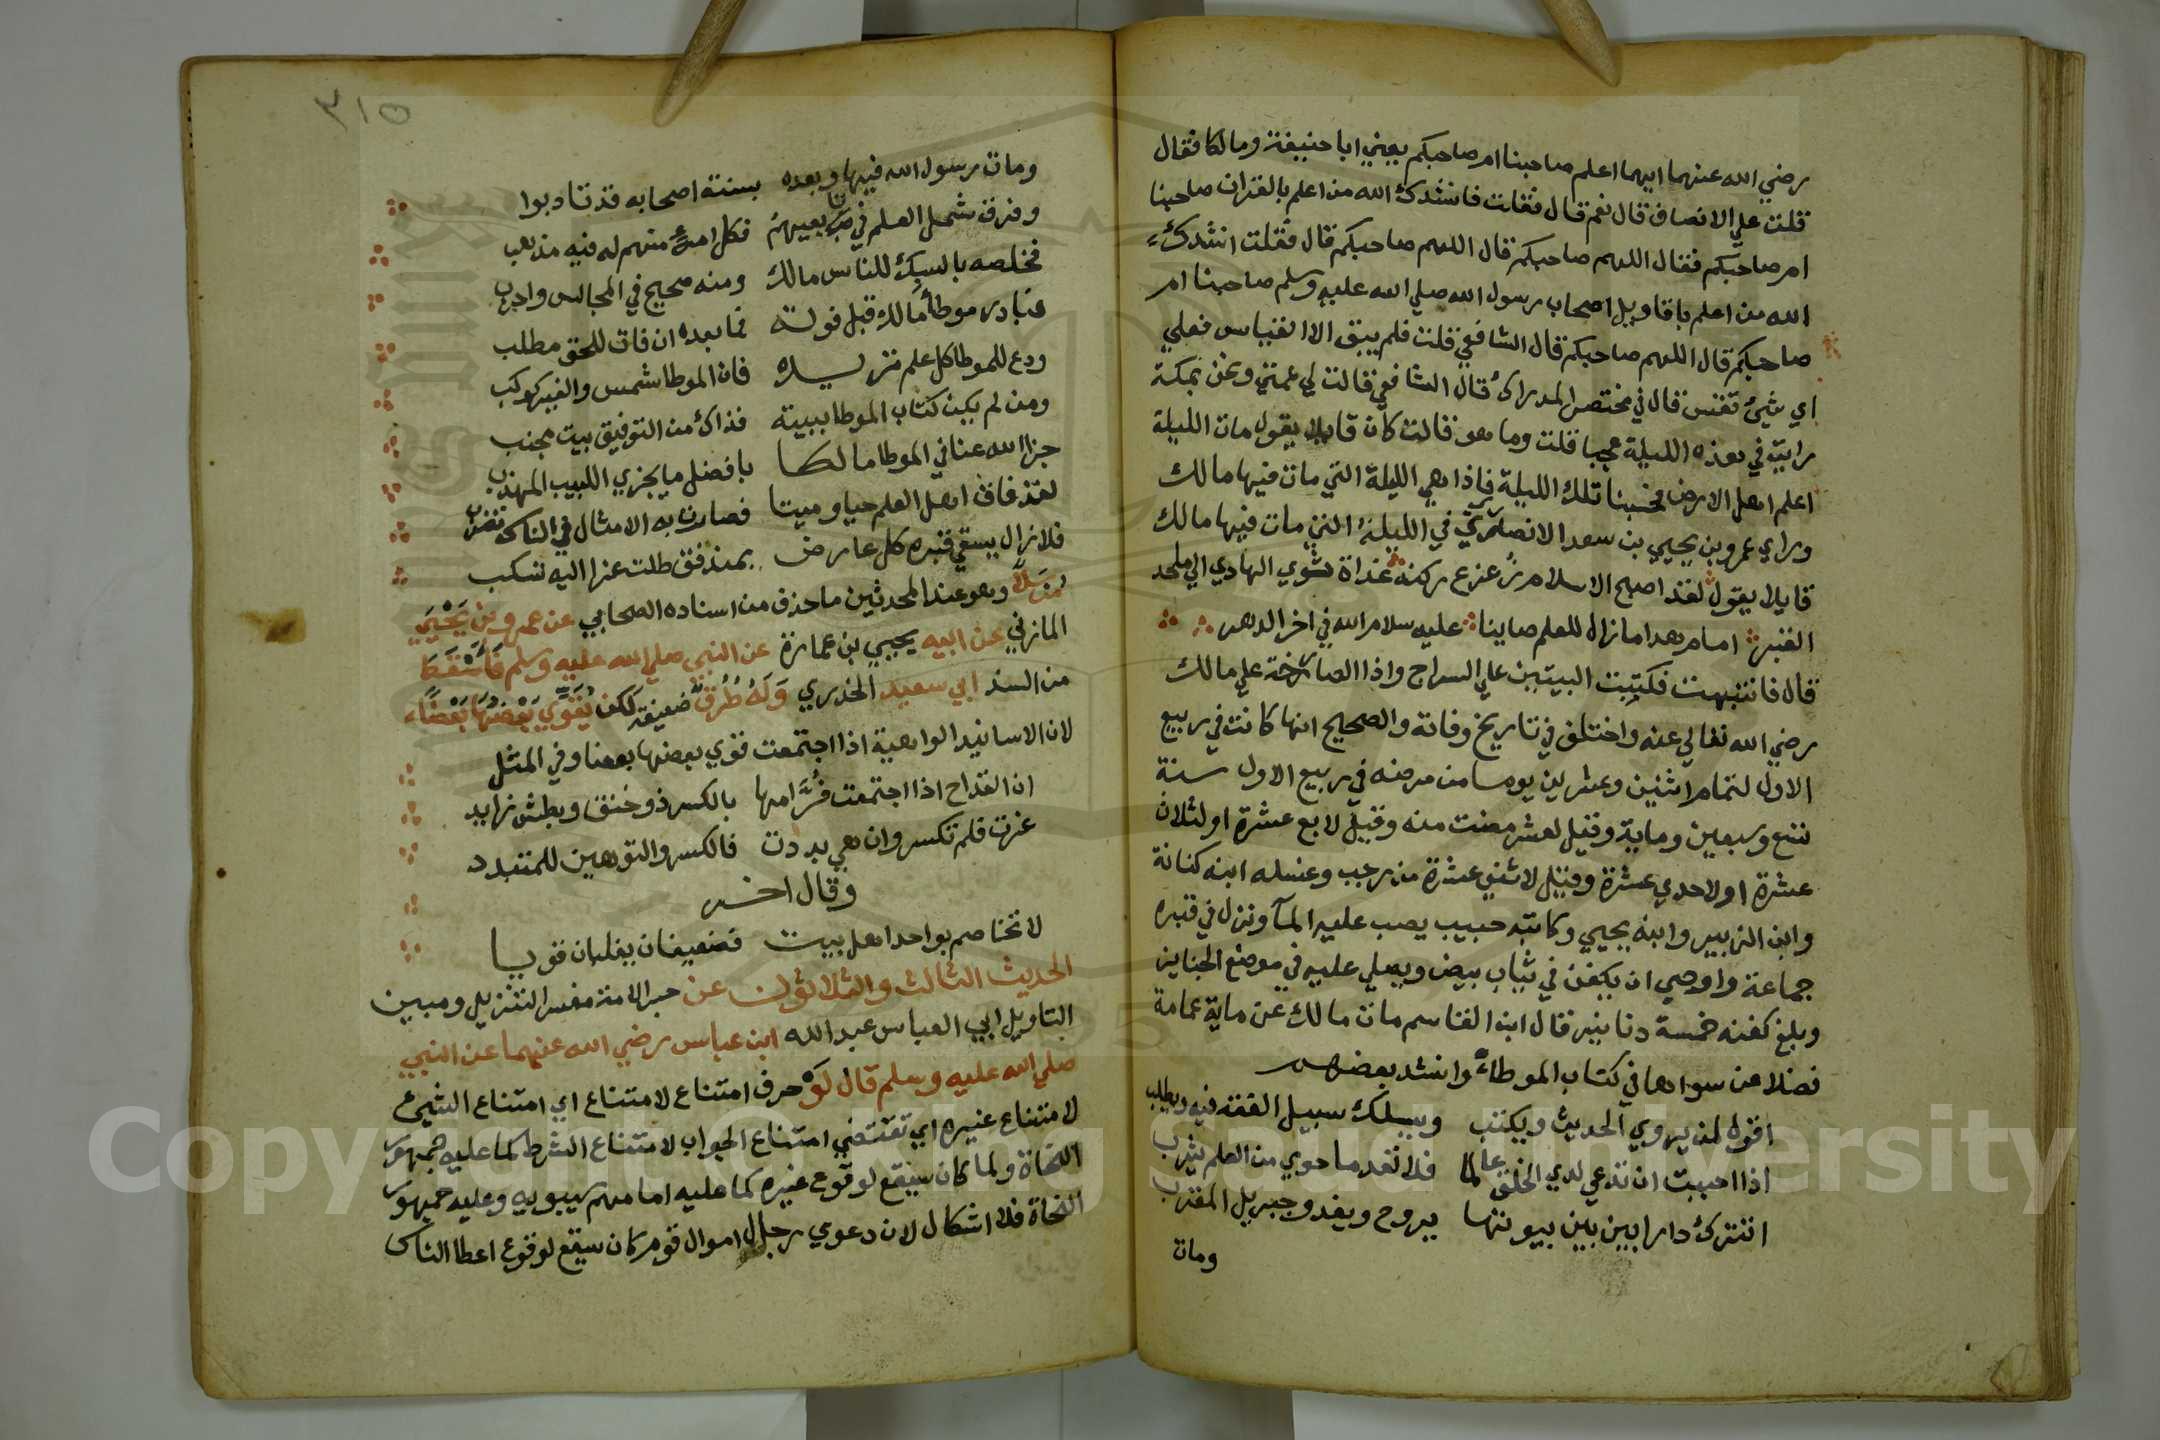 رضي الله عنهما ايهما اعلم صاحبنا ام صاحبكم يعني ابا حنيفة ومالكا فقال
قلت علي الانصاف قال نعم قال فقلت فانشدك الله من اعلم بالقران صاحبنا
ام صاحبكم فقال اللهم صاحبكم قال اللهم صاحبكم قال فقلت انشدك
الله من اعلم باقاويل اصحاب رسول الله صلي الله عليه وسلم صاحبنا ام
صاحبكم قال اللهم صاحبكم قال الشافعي قلت فلم يبق الا القياس فعلي
اي شيئ تقس قال في مختصر المدارك قال الشافعي قالت لي عمتي ونحن بمكة
رايت في هذه الليلة عجبا قلت وما هو قالت كان قايلا يقول مات الليلة
اعلم اهل الارض فحسبنا تلك الليلة فاذا هي الليلة التي مات فيها مالك
وراي عمرو بن يحيي بن سعد الانصاري في الليلة التي مات فيها مالك
قايلا يقول لقد اصبح الاسلام زعزع ركنه غداة ثوي الهادي الي ملحد
القبر امام هدا ما زال للعلم صاينا عليه سلام الله في اخر الدهر
قال فانتبهت فكتبت البيتين علي السراج واذا الصارخة علي مالك
رضي الله تعالي عنه واختلف في تاريخ وفاته والصحيح انها كانت في ربيع
الاول لتمام اثنين وعشرين يوما من مرضه في ربيع الاول سنة
تسع وسبعين وماية وقيل لعشر مضت منه وقيل لاربع عشرة او لثلاث
عشرة او لاحدي عشرة وقيل لاثني عشرة من رجب وغسله ابنه كنانة
وابن الزبير وابنه يحيي وكاتبه حبيب يصب عليه المآ ونزل في قبره
جماعة واوصي ان يكفن في ثياب بيض ويصلي عليه في موضع الجنايز
وبلغ كفنه خمسة دنانير قال ابن القاسم مات مالك عن ماية عمامة
فضلا عن سواها في كتاب الموطا وانشد بعضهم
اقول لمن يروي الحديث ويكتب ويسلك سبيل الفقه فيه ويطلب
اذا احببت ان تدعي لدي الخلق عالما فلا تعد ما حوي من العلم يثرب
اتترك دارا بين بين بيوتها يروح ويغدو جبريل المقرب
ومات
٣١٥
ومات رسول الله فيها وبعده بسنته اصحابه قد تادبوا
وفرق شمل العلم في تابعيهم فكل امرئ منهم له فيه مذهب
فخلصه بالسبك للناس مالك ومنه صحيح في المجالس واجرب
فبادر موطأ مالك قبل فوته فما بعده ان فات للحق مطلب
ودع للموطا كل علم تريده فان الموطا شمس والغير كوكب
ومن لم يكن كتاب الموطا ببيته فذاك من التوفيق بيت مجنب
جزا الله عنا في الموطا مالكا بافضل ما يجزي اللبيب المهذب
لقد فاق اهل العلم حيا وميتا فصارت به الامثال في الناس تضرب
فلا زال يسقي قبره كل عارض بمندفق طلت عزا اليه تسكب
مرسلا وهو عند المحدثين ما حذف من اسناده الصحابي عن عمرو بن يحيي
المازني عن ابيه يحيي بن عمارة عن النبي صلي الله عليه وسلم فاسقط
من السند ابي سعيد الخدري وله طرق ضعيفة لكن يقوي بعضها بعضا
لان الاسانيد الواهية اذا اجتمعت قوي بعضها بعضا وفي المثل
ان القداح اذا اجتمعت فرامها بالكسر ذو حنق وبطش زايد
عزت فلم تكسر وان هي بددت فالكسر والتوهين للمتبدد
وقال اخر
لا تخاصم بواحد اهل بيت فضعيفان يغلبان قويا
الحديث الثالث والثلاثون عن حبر الامة مفسر التنزيل ومبين
التاويل ابي العباس عبد الله ابن عباس رضي الله عنهما عن النبي
صلي الله عليه وسلم قال لو حرف امتناع لامتناع اي امتناع الشيئ
لامتناع غيره اي تقتضي امتناع الجواب لامتناع الشرط كما عليه جمهور
النحاة ولما كان سيقع لوقوع غيره كما عليه امامهم سيبويه وعليه جمهور
النحاة فلا اشكال لان دعوي رجال اموال قوم كان سيقع لوقوع اعطا الناس
Copyright King Saud University